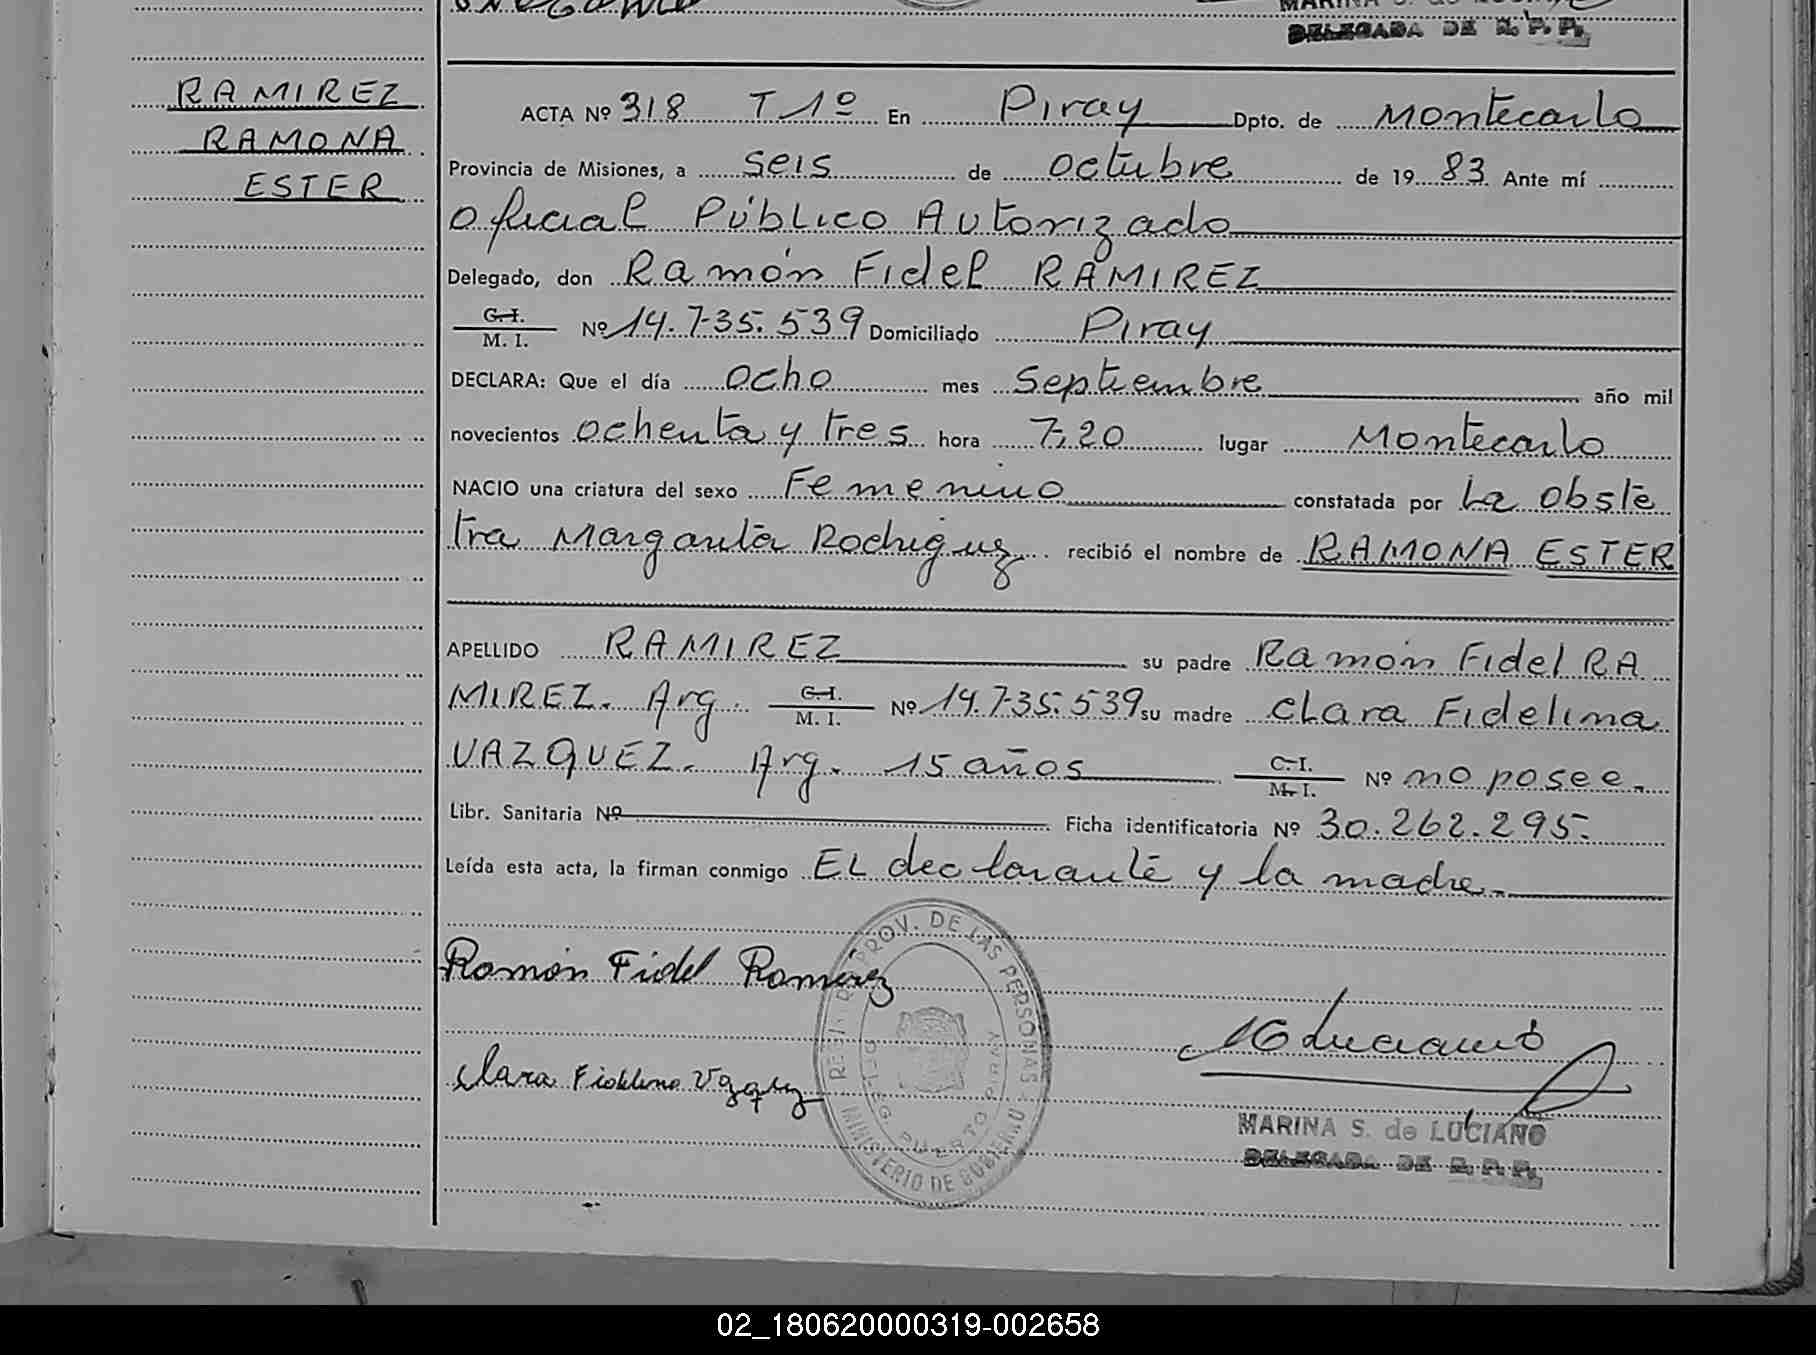 MARINA S. de LUCIANO
DELEGADA DE R. P. P.
RAMIREZ
RAMONA
ESTER
ACTA Nº 318 T 1º En Piray Dpto. de Montecarlo
Provincia de Misiones, a seis de octubre de 1983 Ante mí
Oficial Público Autorizado
Delegado, don Ramón Fidel RAMIREZ
C. I.
M. I. Nº 14.735.539 Domiciliado Piray
DECLARA: Que el día ocho mes Septiembre año mil
novecientos ochenta y tres hora 7,20 lugar Montecarlo
NACIO una criatura del sexo Femenino constatada por La obste
tra Margarita Rodriguez recibió el nombre de RAMONA ESTER
APELLIDO RAMIREZ su padre Ramón Fidel RA
MIREZ. Arg. C. I. M. I. Nº 14.735.539 su madre Clara Fidelina
VAZQUEZ. Arg. 15 años C. I. M. I. Nº no posee.
Libr. Sanitaria Nº Ficha identificatoria Nº 30.262.295.
Leída esta acta, la firman conmigo EL declarante y la madre.
Ramón Fidel Ramirez
Clara Fidelina Vazquez
REG. PROV. DE LAS PERSONAS
DELEG. PUERTO PIRAY
MINISTERIO DE GOBIERNO
MLuciano
MARINA S. de LUCIANO
DELEGADA DE R. P. P.
02_180620000319-002658